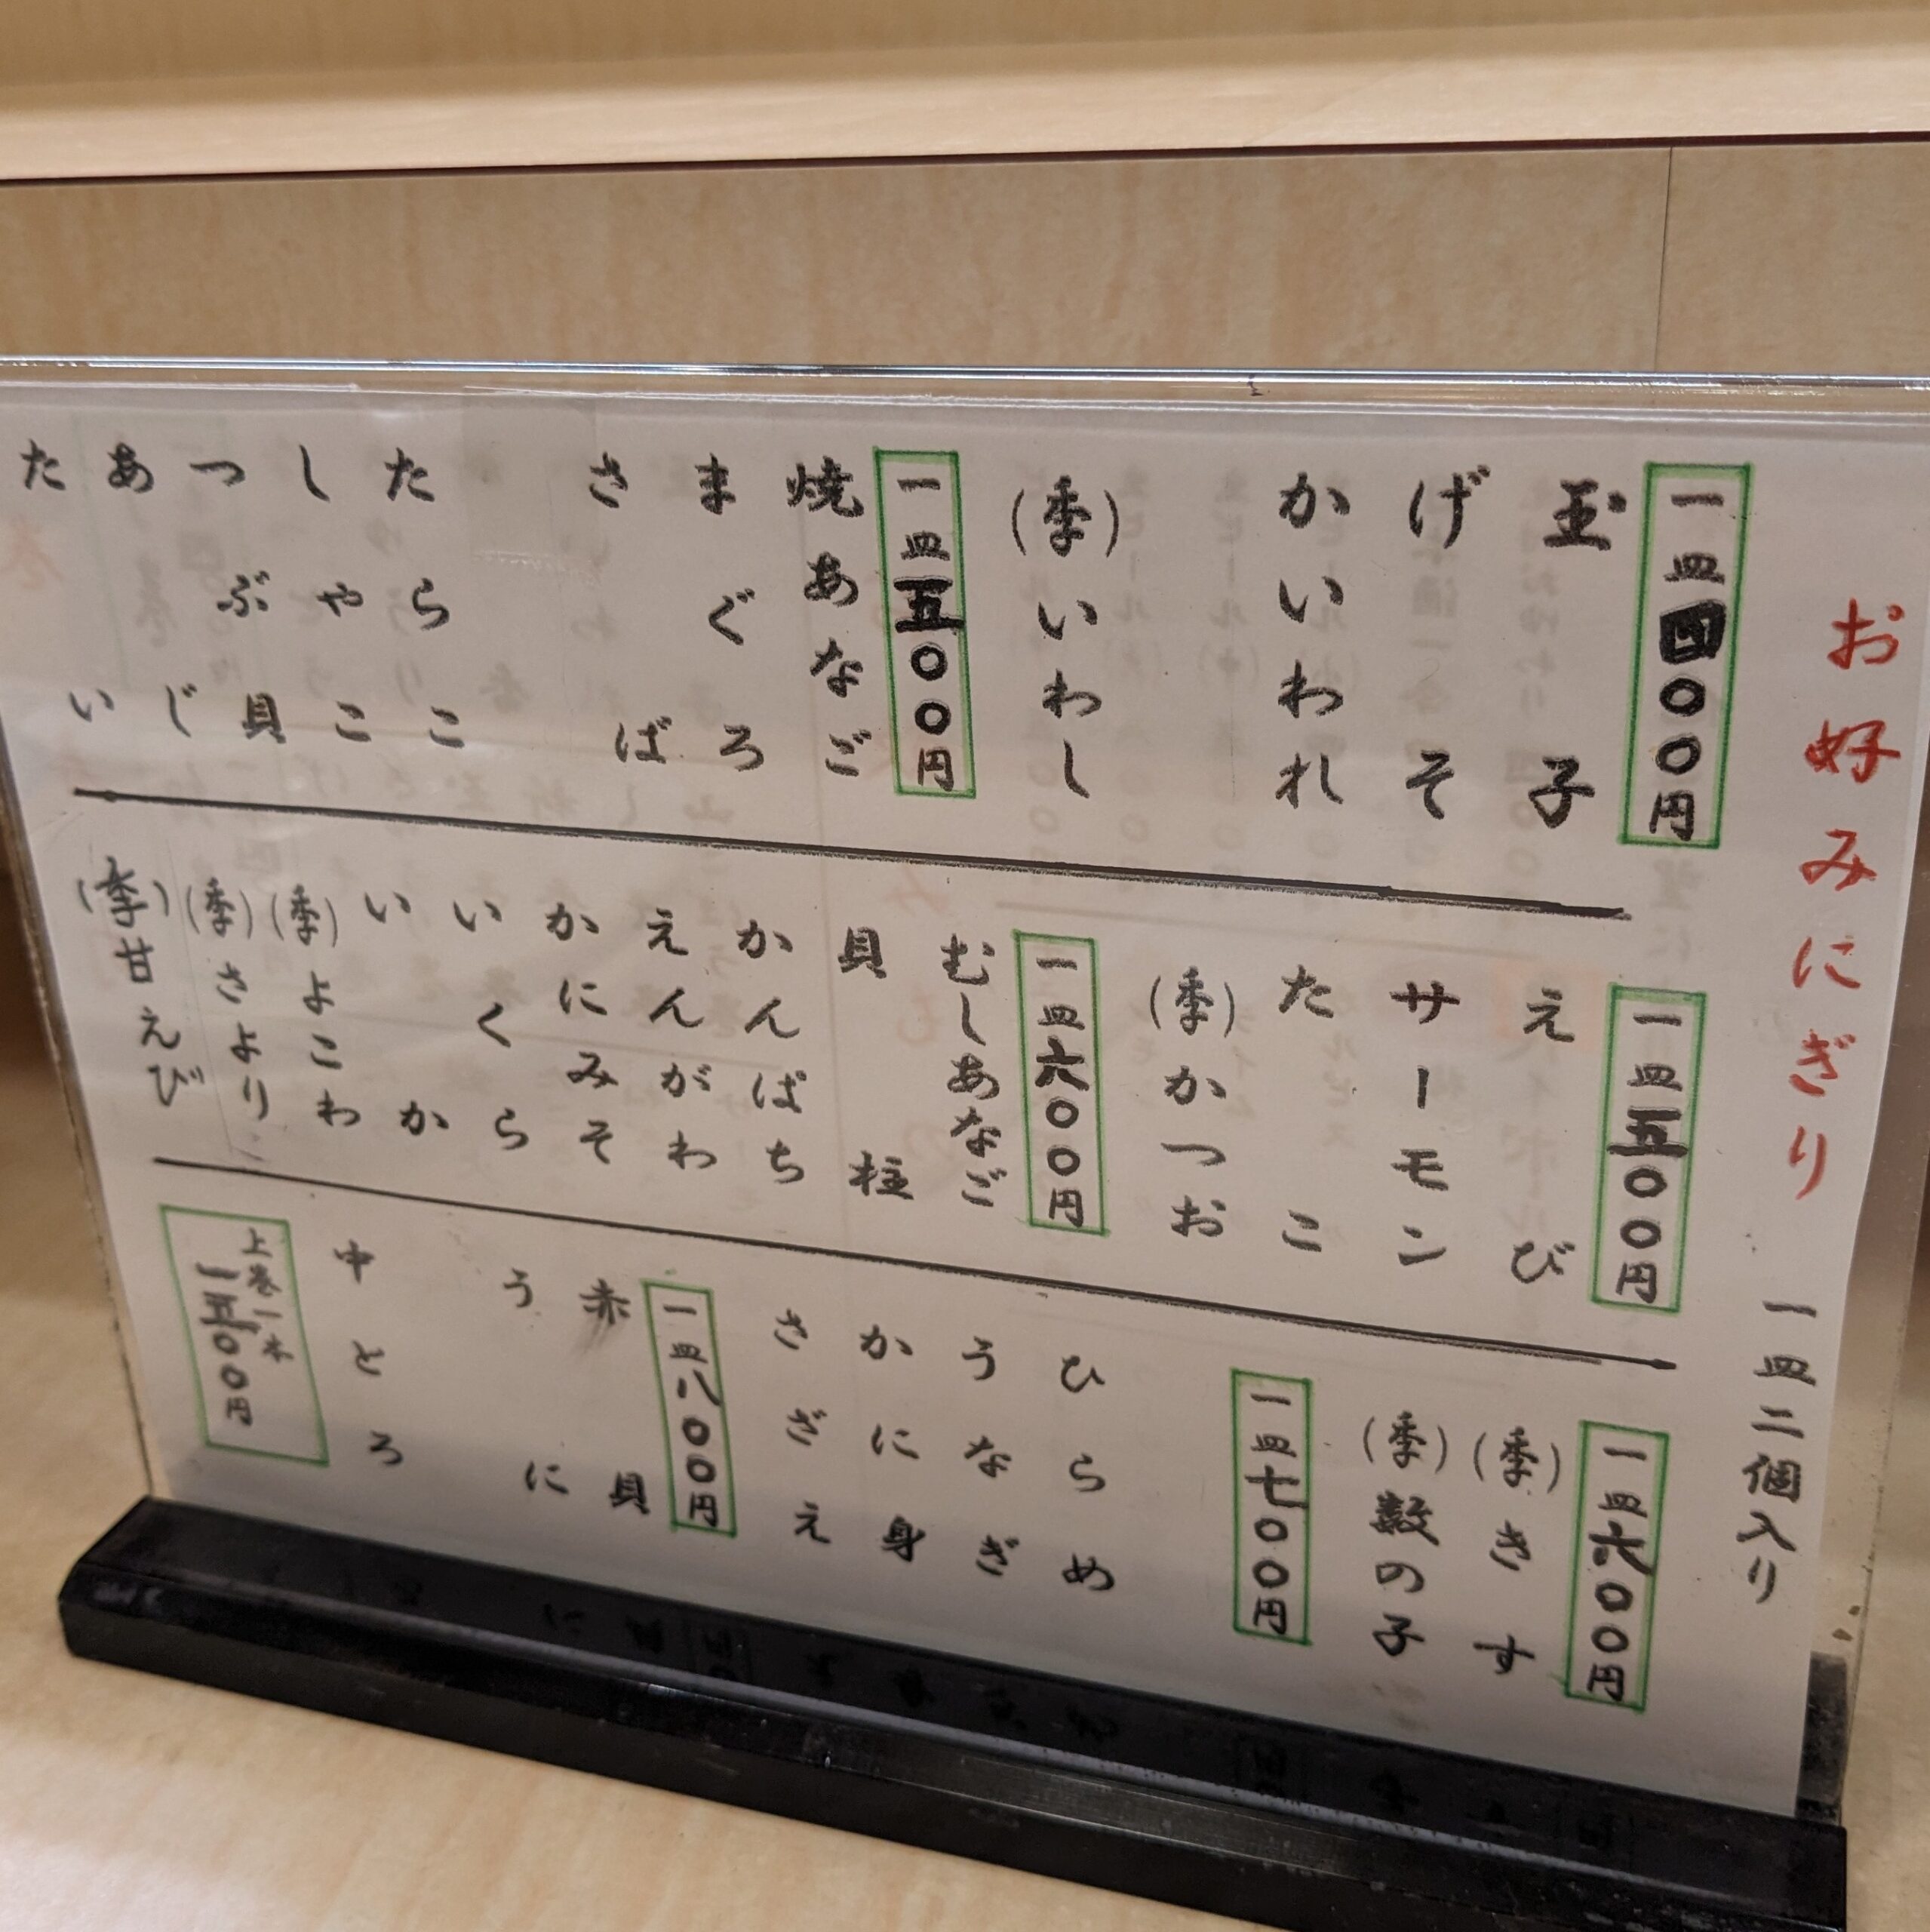 お好みにぎり 一皿二個入り
一皿四〇〇円
玉子
げそ
かいわれ
(季)いわし
一皿五〇〇円
焼あなご
まぐろ
さば
たらこ
しゃこ
つぶ貝
あじ
たい
一皿五〇〇円
えび
サーモン
たこ
(季)かつお
一皿六〇〇円
むしあなご
貝柱
かんぱち
えんがわ
かにみそ
いくら
いか
(季)よこわ
(季)さより
(季)甘えび
一皿六〇〇円
(季)きす
(季)数の子
一皿七〇〇円
ひらめ
うなぎ
かに身
さざえ
一皿八〇〇円
赤貝
うに
中とろ
上巻一本
一五〇〇円